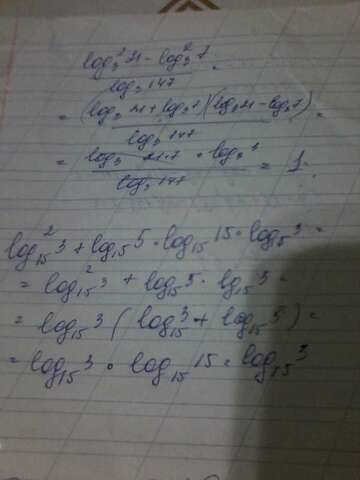 log₃² 21 - log₃² 7
log₃ 147
= (log₃ 21 + log₃ 7)(log₃ 21 - log₃ 7) =
log₃ 147
= log₃ 21·7 · log₃ 3 = 1.
log₃ 147
log₁₅² 3 + log₁₅ 5 · log₁₅ 15 · log₁₅ 3 =
= log₁₅² 3 + log₁₅ 5 · log₁₅ 3 =
= log₁₅ 3 ( log₁₅ 3 + log₁₅ 5 ) =
= log₁₅ 3 · log₁₅ 15 = log₁₅ 3